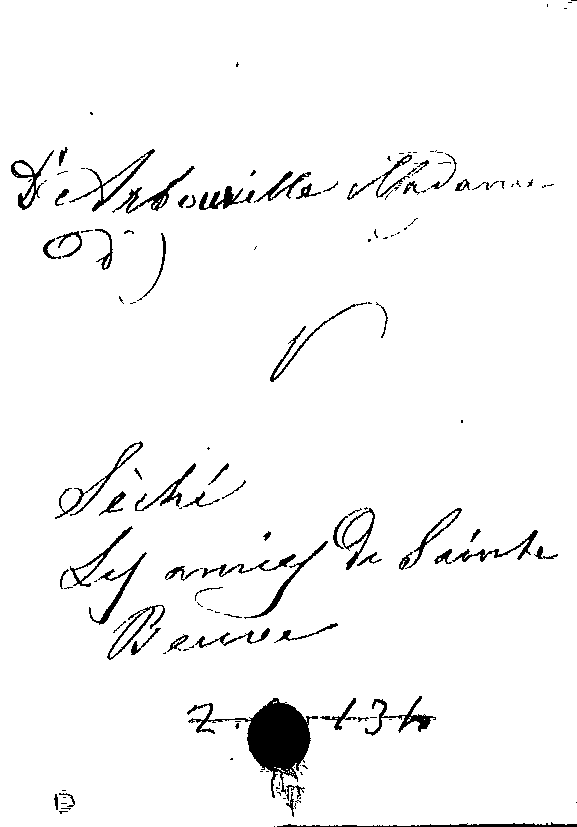 D'Arbouville Madame
d')
V
Séché
Les amies de Sainte
Beuve
2. 131